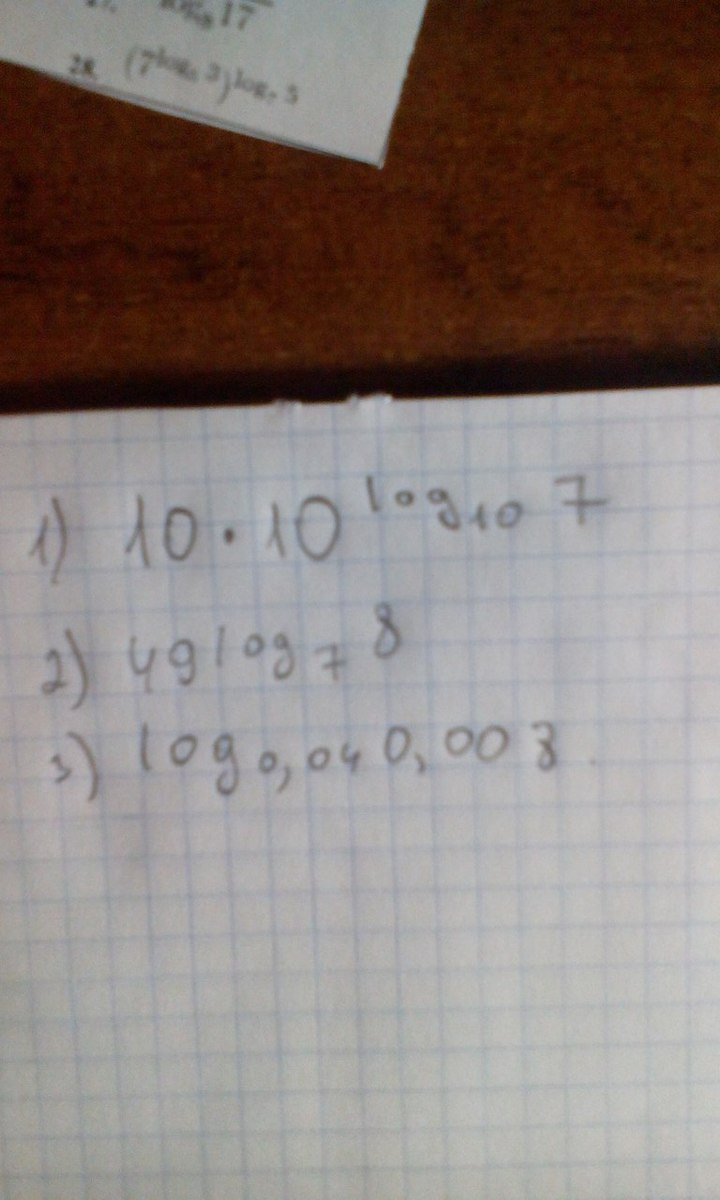 17
28. (7^log₃)^log₇ 5
1) 10 · 10^log₁₀ 7
2) 49^log₇ 8
3) log₀,₀₄ 0,008.